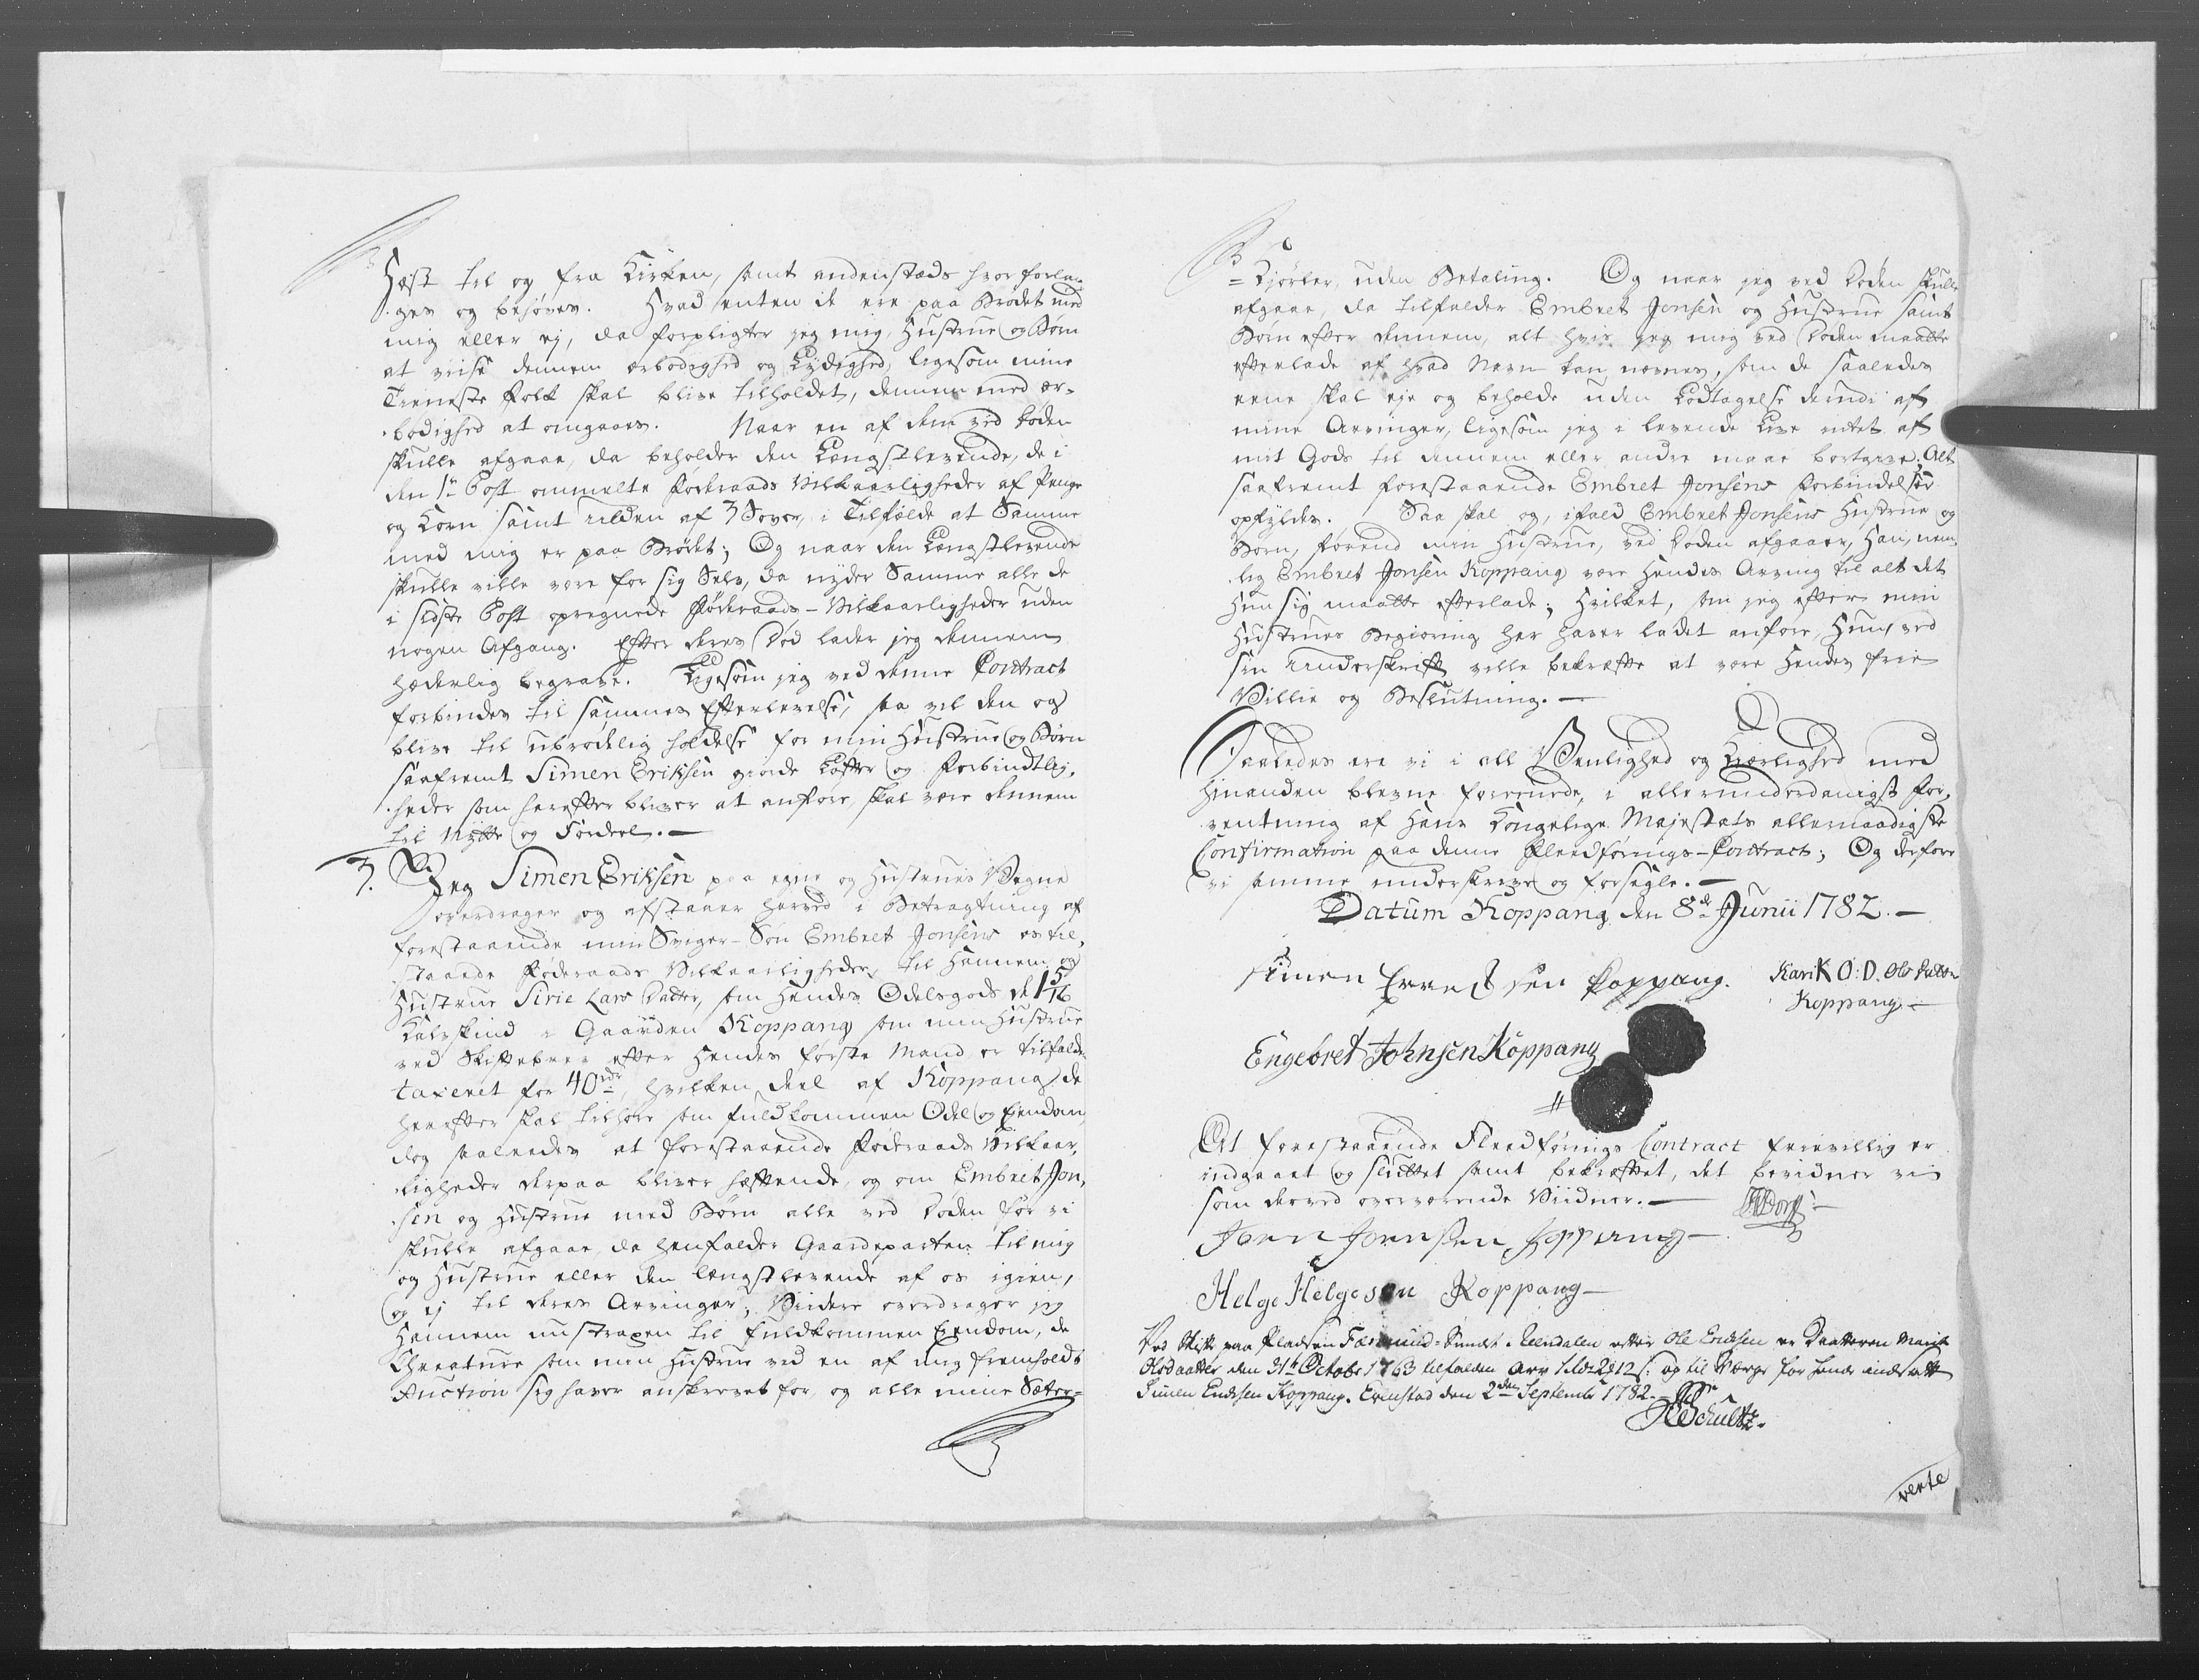 Hest til og fra Kirken, samt andenstæds hvor forlan-
ges og behøves. Hvad enten de ere paa Brødet med
mig eller ej, da forpligter jeg mig, Hustrue og Børn
at viise dennem ærbødighed og Lydighed, ligesom mine
Tieneste Folk skal blive tilholdet, dennem med ær-
bødighed at omgaaes. Naar en af dem ved Døden
skulle afgaae, da beholder den Længstlevende, de i
den 1te Post ommelte Føderaads Vilkaarligheder af Penge
og Korn samt Ulden af 3 Sover, i Tilfælde at Samme
med mig er paa Brødet; Og naar den Længstlevende
skulle ville være for sig Selv, da nyder Samme alle de
i sidste Post opregnede Føderaads-Vilkaarligheder uden
nogen Afgang. Efter deres Død lader jeg dennem
hæderlig begrave. Ligesom jeg ved denne Contract
forbindes til sammes Efterlevelse, saa vel den og
blive til ubrødelig holdelse for min Hustrue og Børn
saafremt Simen Eriksen giorde Løfter og Forbindtlig-
heder som herefter bliver at anføre, skal være dennem
til Nytte og Fordeel.
3. Jeg Simen Eriksen paa egne og Hustrues Vegne
overdrager og afstaaer herved i Betragtning af
forestaaende min Sviger-Søn Embret Jonsens os til-
staaede Føderaads Vilkaarligheder, til Hannem og
Hustrue Sirie Lars Datter, som Hendes Odelsgods de 1 5/16
Kalvskind i Gaarden Koppang som min Hustrue
ved Skiftebrev efter Hendes første Mand er tilfalden
taxeret for 40 rdr, hvilken deel af Koppang de
herefter skal tilhøre som fuldkommen Odel og Eyendom,
dog saaledes at forestaaende Føderaads Vilkaar-
ligheder derpaa bliver hæftende, og om Embret Jon-
sen og Hustrue med Børn alle ved Døden før vi
skulle afgaae, da henfalder Gaardeparten til mig
og Hustrue eller den længstlevende af os igien,
og ej til deres Arvinger; Viidere overdrager jeg
Hannem til fuldkommen Eyendom, de
Creature som min Hustrue ved en af mig fremholdt
Auction sig haver anskrevet for, og alle mine Sæter-
Kjørler, uden Betaling. Og naar jeg ved Døden skulle
afgaae, da tilfalder Embret Jonsen og Hustrue samt
Børn efter dennem, alt hvis jeg mig ved Døden maatte
efterlade af hvad Navn kan nævnes, som de saaledes
eene skal eje og beholde uden Lodtagelse deraf af
mine Arvinger, ligesom jeg i levende Live intet af
mit Gods til dennem eller andre maae bortgive. Alt
saafremt forestaaende Embret Jonsens Forbindelser
opfyldes. Saa skal og, ifald Embret Jonsens Hustrue og
Børn, forend min Hustrue, ved Døden afgaaer, Han, nem-
lig Embret Jonsen Koppang være Hendes Arving til alt det
Hun sig maatte efterlade; Hvilket, som jeg efter min
Hustrues Begiering her haver ladet anføre, Hun, ved
sin Underskrift ville bekræfte at være Hendes frie
Villie og Beslutning.
Saaledes ere vi i all Venlighed og Kierlighed med
Hinanden blevne foreenede, i allerunderdanigst For-
ventning af Hans Kongelige Majestæts allernaadigste
Confirmation paa denne Fledførings-Contract; Og derfore
vi samme underskrive og forsegle.
Datum Koppang den 8de Junii 1782.
Simen Koppang. Kari K O:D. Ols Datter
Koppang
Engebret Johnsen Koppang
At forestaaende Fledførings Contract frievillig er
indgaaet og sluttet samt bekræftet, det bevidner vi
som derved overværende Vidner. Dorff
Joen Joensen Koppang
Helge Helgesøn Koppang
Ved Skifte paa Pladsen Fæmund-Sundet i Rendalen efter Ole Erichsen er Daatteren Marit
Olsdaatter den 31te October 1763 tilfalden Arv og til Værge for hende indsatt
Simen Erichsen Koppang. Evenstad den 2den Septembr 1782.
Schultz.
verte